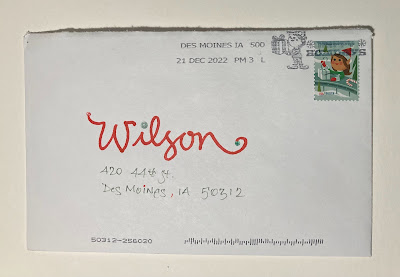 DES MOINES IA 500
21 DEC 2022 PM 3 L
Wilson
420 44th St.
Des Moines, IA 50312
50312-256020